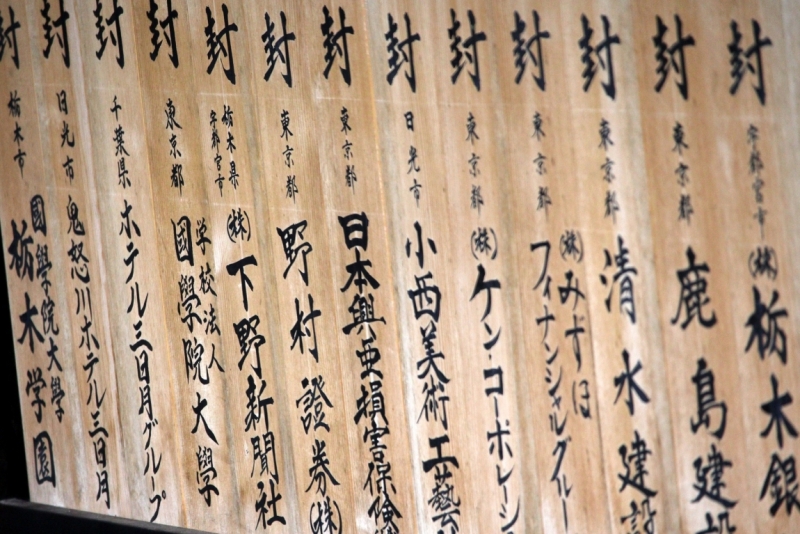 封 宇都宮市 (株)栃木銀
封 東京都 鹿島建設
封 東京都 清水建設
封 東京都 (株)みずほ
フィナンシャルグルー
封 東京都 (株)ケン・コーポレーシ
封 日光市 小西美術工藝
封 東京都 日本興亜損害保険
封 東京都 野村證券(株)
封 栃木県
宇都宮市 (株)下野新聞社
封 東京都 学校法人
國學院大學
封 千葉県 ホテル三日月グループ
封 日光市 鬼怒川ホテル三日月
封 栃木市 國學院大學
栃木学園